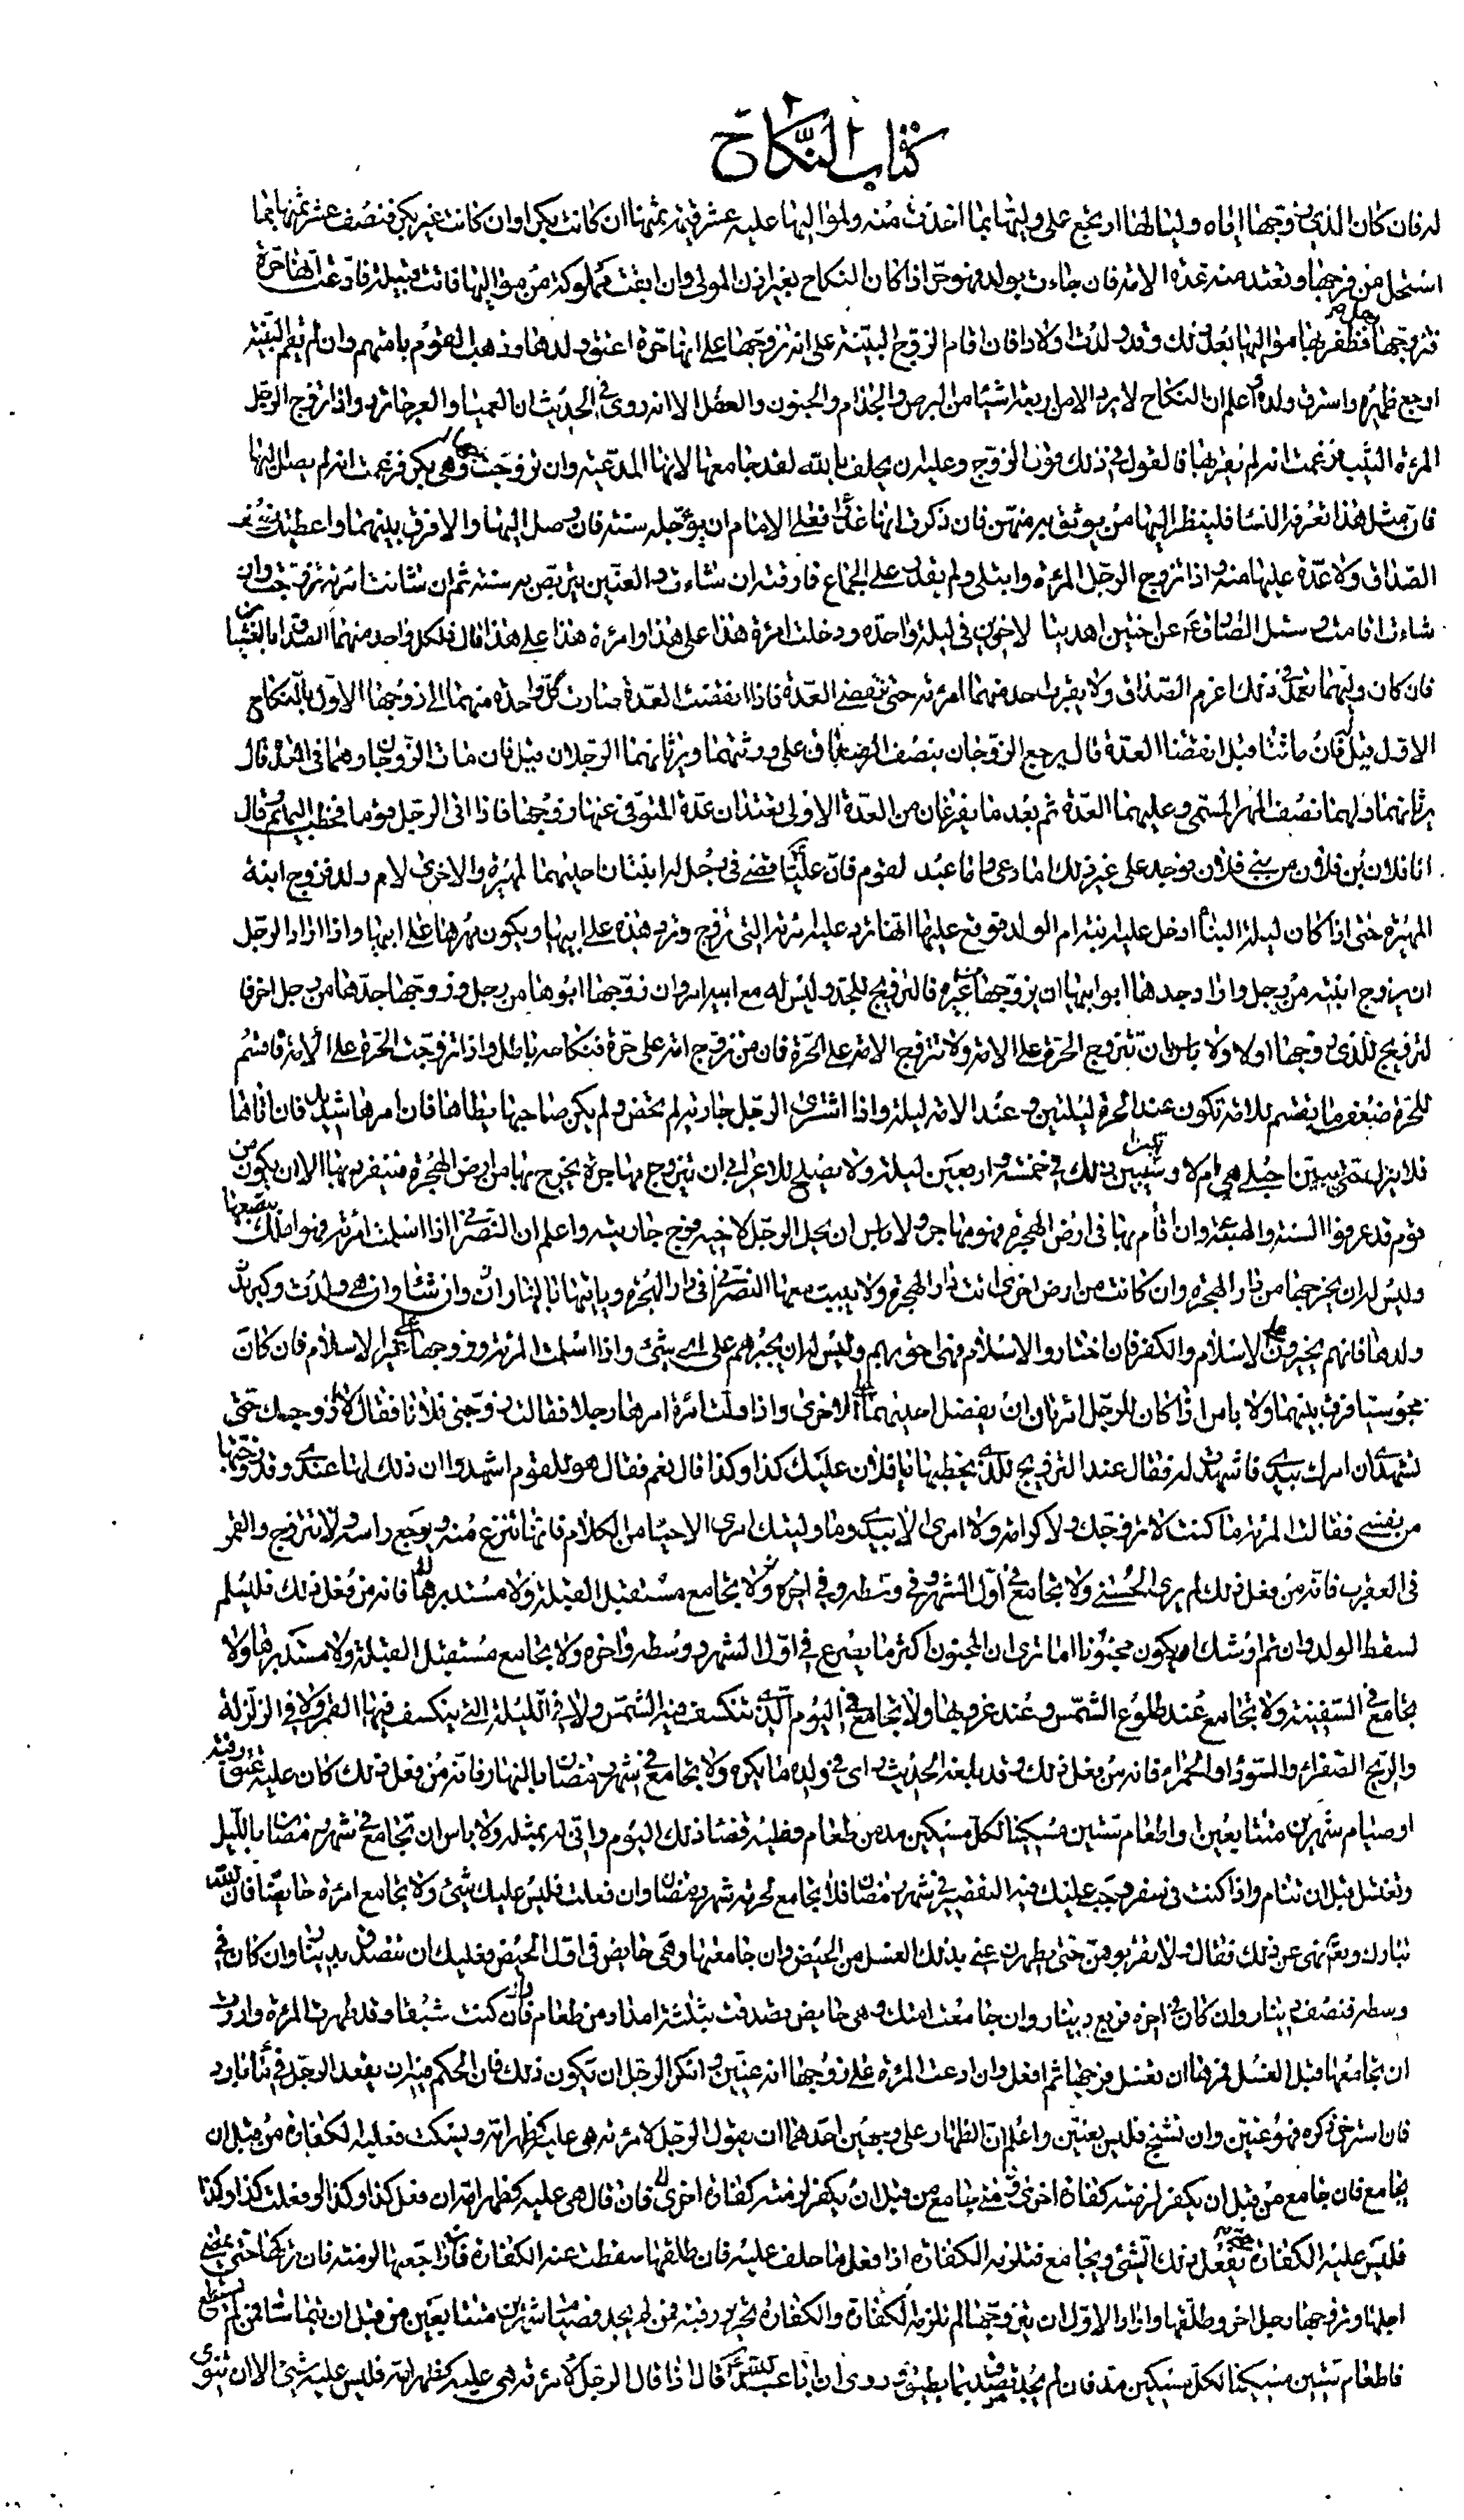 كتاب النكاح
له فان كان الذي زوجها اياه ولينا لها ارتجع على وليها بما اخذت منه ولمواليها عليه عشر قيمة ثمنها ان كانت بكرا وان كانت غير بكر فنصف عشر ثمنها بما
استحل من فرجها وتعتد منه عدة الامة فان جاءت بولد فهو حر اذا كان النكاح بغير اذن المولى وان ابقت مملوكة من مواليها فاتت قبيلة فادعت انها حرة
فتزوجها رجل فظفر بها مواليها بعد ذلك وقد ولدت اولادا فان اقام الزوج البينة على انه تزوجها على انها حرة اعتق ولدها وذهب القوم بامتهم وان لم يقم البينة
اوجع ظهره واسترق ولده واعلم ان النكاح لا يرد الا من اربعة اشياء من البرص والجذام والجنون والعفل الا انه روى في الحديث ان العمياء والعرجاء ترد واذا تزوج الرجل
المرئة الثيب فزعمت انه لم يقربها فالقول في ذلك قول الزوج وعليه ان يحلف بالله لقد جامعها لانها المدعية وان تزوجت وهي بكر فزعمت انه لم يصل اليها
فان مثل هذا تعرفه النساء فلينظر اليها من يوثق به منهن فان ذكرت انها عذراء فعلى الامام ان يؤجله سنة فان وصل اليها والا فرق بينهما واعطيت نصف
الصداق ولا عدة عليها منه واذا تزوج الرجل المرئة وابتلى ولم يقدر على الجماع فارقته ان شاءت والعنين يتربص به سنة ثم ان شائت امرئته تزوجت وان
شاءت اقامت وسئل الصادق ع عن اختين اهديتا لاخوين في ليلة واحدة ودخلت امرئة هذا على هذا وامرئة هذا على هذا قال فلكل واحد منهما الصداق بالغشيان
فان كان وليهما تعمد ذلك غرم الصداق ولا يقرب احد منهما امرئته حتى تنقضي العدة فاذا انقضت العدة صارت كل واحدة منهما الى زوجها الاول بالنكاح
الاول قيل فان ماتتا قبل انقضاء العدة قال يرجع الزوجان بنصف الصداق على ورثتهما ويرثانهما الرجلان قيل فان مات الزوجان وهما في العدة قال
يرثانهما ولهما نصف المهر المسمى وعليهما العدة ثم بعد ما يفرغان من العدة الاولى تعتدان عدة المتوفى عنها زوجها فاذا اتى الرجل قوما فخطب اليهم وقال
انا فلان بن فلان من بني فلان فوجد على غير ذلك اما دعي واما عبد لقوم فان عليا قضى في رجل له ابنتان احديهما لمهيرة والاخرى لام ولد فزوج ابنة
المهيرة حتى اذا كان ليلة البناء ادخل عليه ابنة ام الولد فوقع عليها انها ترد عليه امرئته التي تزوج وترد هذه على ابيها ويكون مهرها على ابيها واذا اراد الرجل
ان يزوج ابنته من رجل واراد جدها ابو ابيها ان يزوجها من غيره فالتزويج للجد وليس له مع ابيه امر وان زوجها ابوها من رجل وزوجها جدها من رجل اخر فا
لتزويج للذي زوجها اولا ولا باس ان تتزوج الحرة على الامة ولا تتزوج الامة على الحرة فان من تزوج امة على حرة فنكاحه باطل واذا تزوجت الحرة على الامة فاقسم
للحرة ضعف ما يقسم للامة تكون عند الحرة ليلتين وعند الامة ليلة واذا اشترى الرجل جارية لم تحض ولم يكن صاحبها يطاها فان امرها شديد فان اتاها
فلا ينزل حتى يستبين احبلى هي ام لا ويستبين ذلك في خمسة واربعين ليلة ولا يصلح للاعرابي ان يتزوج مهاجرة يخرج بها من ارض الهجرة فيتعرب بها الا ان يكون من
قوم قد عرفوا السنة والحجة وان اقام بها في ارض الهجرة فهو مهاجر ولا باس ان يحل الرجل لاخيه فرج جاريته واعلم ان النصراني اذا اسلمت امرئته فهو املك ببضعها
وليس له ان يخرجها من دار الهجرة وان كانت من ارض اخرى اتت دار الهجرة ولا يبيت معها النصراني في دار الهجرة وياتيها بالنهار ان شاء وان هي ولدت وكبر
ولدها فانهم يخيرون بين الاسلام والكفر فان اختاروا الاسلام فهي احق بهم وليس له ان يجبرهم على شيئ واذا اسلمت المرئة وزوجها على غير الاسلام فان كان
مجوسيا فرق بينهما ولا باس اذا كان للرجل امرئتان ان يفضل احديهما على الاخرى واذا ولت امرئة امرها رجلا فقالت زوجني فلانا فقال لا ازوجك حتى
تشهدي ان امرك بيدي فاشهدت له فقال عند التزويج للذي يخطبها يا فلان عليك كذا وكذا قال نعم فقال هو للقوم اشهدوا ان ذلك لها عندي وقد زوجتها
من نفسي فقالت المرئة ما كنت لاتزوجك ولا كرامة ولا امري الا بيدي وما وليتك امري الا حياء من الكلام فانها تنزع منه ويوجع راسه ولا تتزوج والقمر
في العقرب فانه من فعل ذلك لم ير الحسنى ولا تجامع في اول الشهر وفي وسطه وفي اخره ولا تجامع مستقبل القبلة ولا مستدبرها فانه من فعل ذلك فليسلم
لسقط الولد وان تم اوشك ان يكون مجنونا اما ترى ان المجنون اكثر ما يصرع في اول الشهر ووسطه واخره ولا تجامع مستقبل القبلة ولا مستدبرها ولا
تجامع في السفينة ولا تجامع عند طلوع الشمس وعند غروبها ولا تجامع في اليوم الذي تنكسف فيه الشمس ولا في الليلة التي ينكسف فيها القمر ولا في الزلزلة
والريح الصفراء والسوداء والحمراء فانه من فعل ذلك وقد بلغه الحديث راى في ولده ما يكره ولا تجامع في شهر رمضان بالنهار فانه من فعل ذلك كان عليه عتق رقبة
او صيام شهرين متتابعين او اطعام ستين مسكينا لكل مسكين مد من طعام وعليه قضاء ذلك اليوم واني له بمثله ولا باس ان تجامع في شهر رمضان بالليل
وتغتسل قبل ان تنام واذا كنت في سفر وجب عليك فيه التقصير في شهر رمضان فلا تجامع لحرمة شهر رمضان وان فعلت فليس عليك شيئ ولا تجامع امرئة حايضا فان الله
تبارك وتعالى نهى عن ذلك فقال ولا تقربوهن حتى يطهرن عنى بذلك الغسل من الحيض وان جامعتها وهي حايض في اول الحيض فعليك ان تتصدق بدينار وان كان في
وسطه فنصف دينار وان كان في اخره فربع دينار وان جامعت امتك وهي حايض تصدقت بثلثة امداد من طعام فان كنت شبقا وقد طهرت المرئة واردت
ان تجامعها قبل الغسل فمرها ان تغسل فرجها ثم افعل وان ادعت المرئة على زوجها انه عنين وانكر الرجل ان يكون ذلك فان الحكم فيه ان يقعد الرجل في ماء بارد
فان استرخى ذكره فهو عنين وان تشنج فليس بعنين واعلم ان الظهار على وجهين احدهما ان يقول الرجل لامرئته هي عليه كظهر امه ويسكت فعليه الكفارة من قبل ان
يجامع فان جامع من قبل ان يكفر لزمته كفارة اخرى ومتى جامع من قبل ان يكفر لزمته كفارة اخرى فان قال هي عليه كظهر امه ان فعل كذا وكذا او فعلت كذا وكذا
فليس عليه الكفارة حتى يفعل ذلك الشيئ ويجامع فتلزمه الكفارة اذا فعل ما حلف عليه فان طلقها سقطت عنه الكفارة فاذا راجعها لزمته فان تركها حتى يمضي
اجلها وتزوجها رجل اخر وطلقها واراد الاول ان يتزوجها لم تلزمه الكفارة والكفارة تحرير رقبة فمن لم يجد فصيام شهرين متتابعين من قبل ان يتماسا فمن لم يستطع
فاطعام ستين مسكينا لكل مسكين مد فان لم يجد تصدق بما يطيق وروى ان ابا عبد الله ع قال اذا قال الرجل لامرئته هي عليه كظهر امه فليس عليه شيئ الا ان ينوي